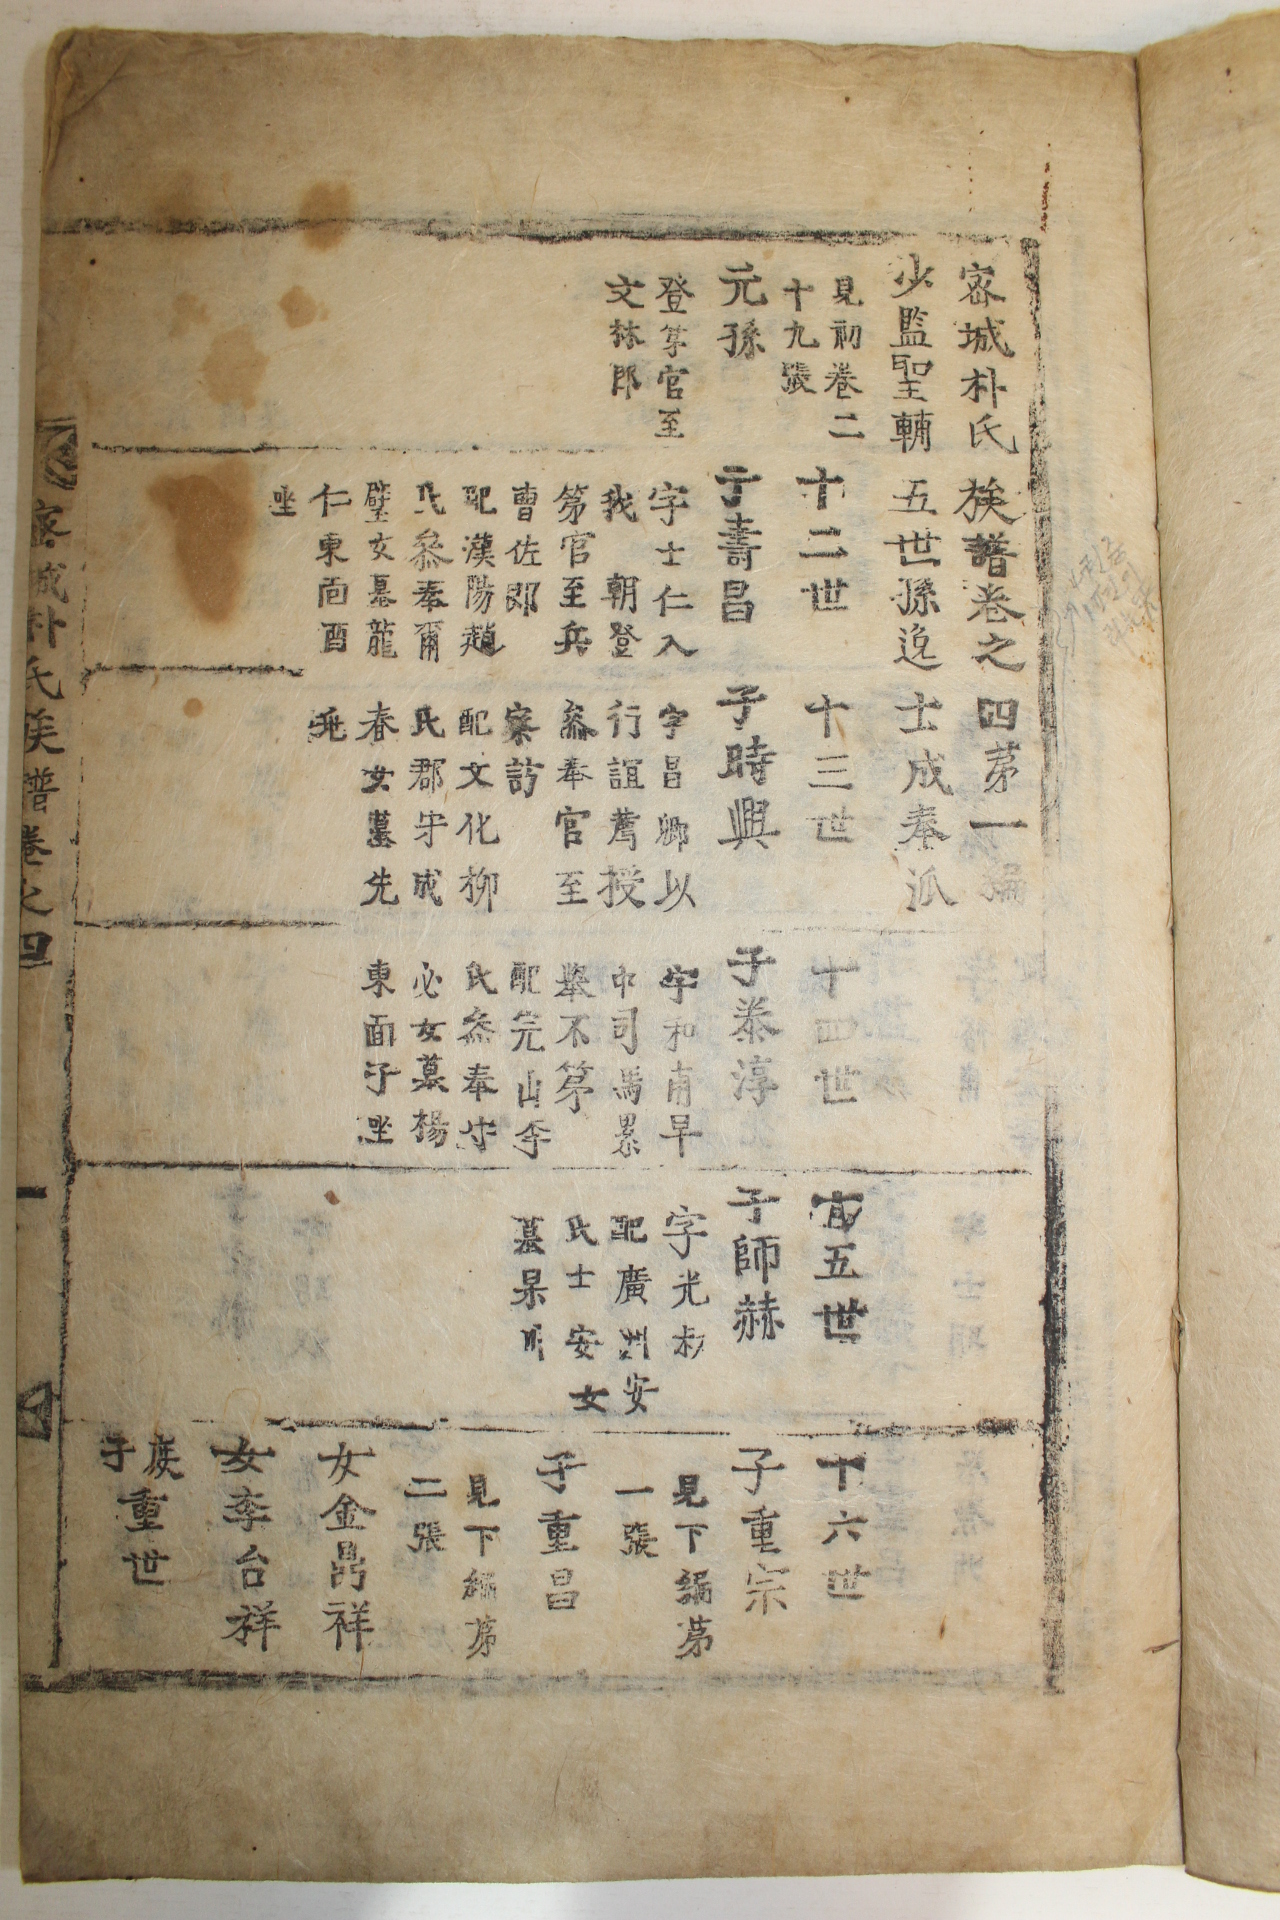 密城朴氏族譜卷之四第一編
少監聖輔五世孫逸士成奉派
見初卷二
十九張
元孫
登第官至
文林郎
十二世
子壽昌
字士仁入
我 朝登
第官至兵
曹佐郎
配漢陽趙
氏叅奉爾
璧女墓龍
仁東面酉
坐
十三世
子時興
字昌卿以
行誼薦授
叅奉官至
察訪
配文化柳
氏郡守成
春女墓先
兆
十四世
子泰淳
字和甫早
中司馬累
舉不第
配完山李
氏叅奉时
必女墓楊
東面子坐
十五世
子師赫
字光叔
配廣州安
氏士安女
墓果川
十六世
子重宗
見下編第
一張
子重昌
見下編第
二張
女金昌祥
女李台祥
庶子重世
密城朴氏族譜卷之四
一